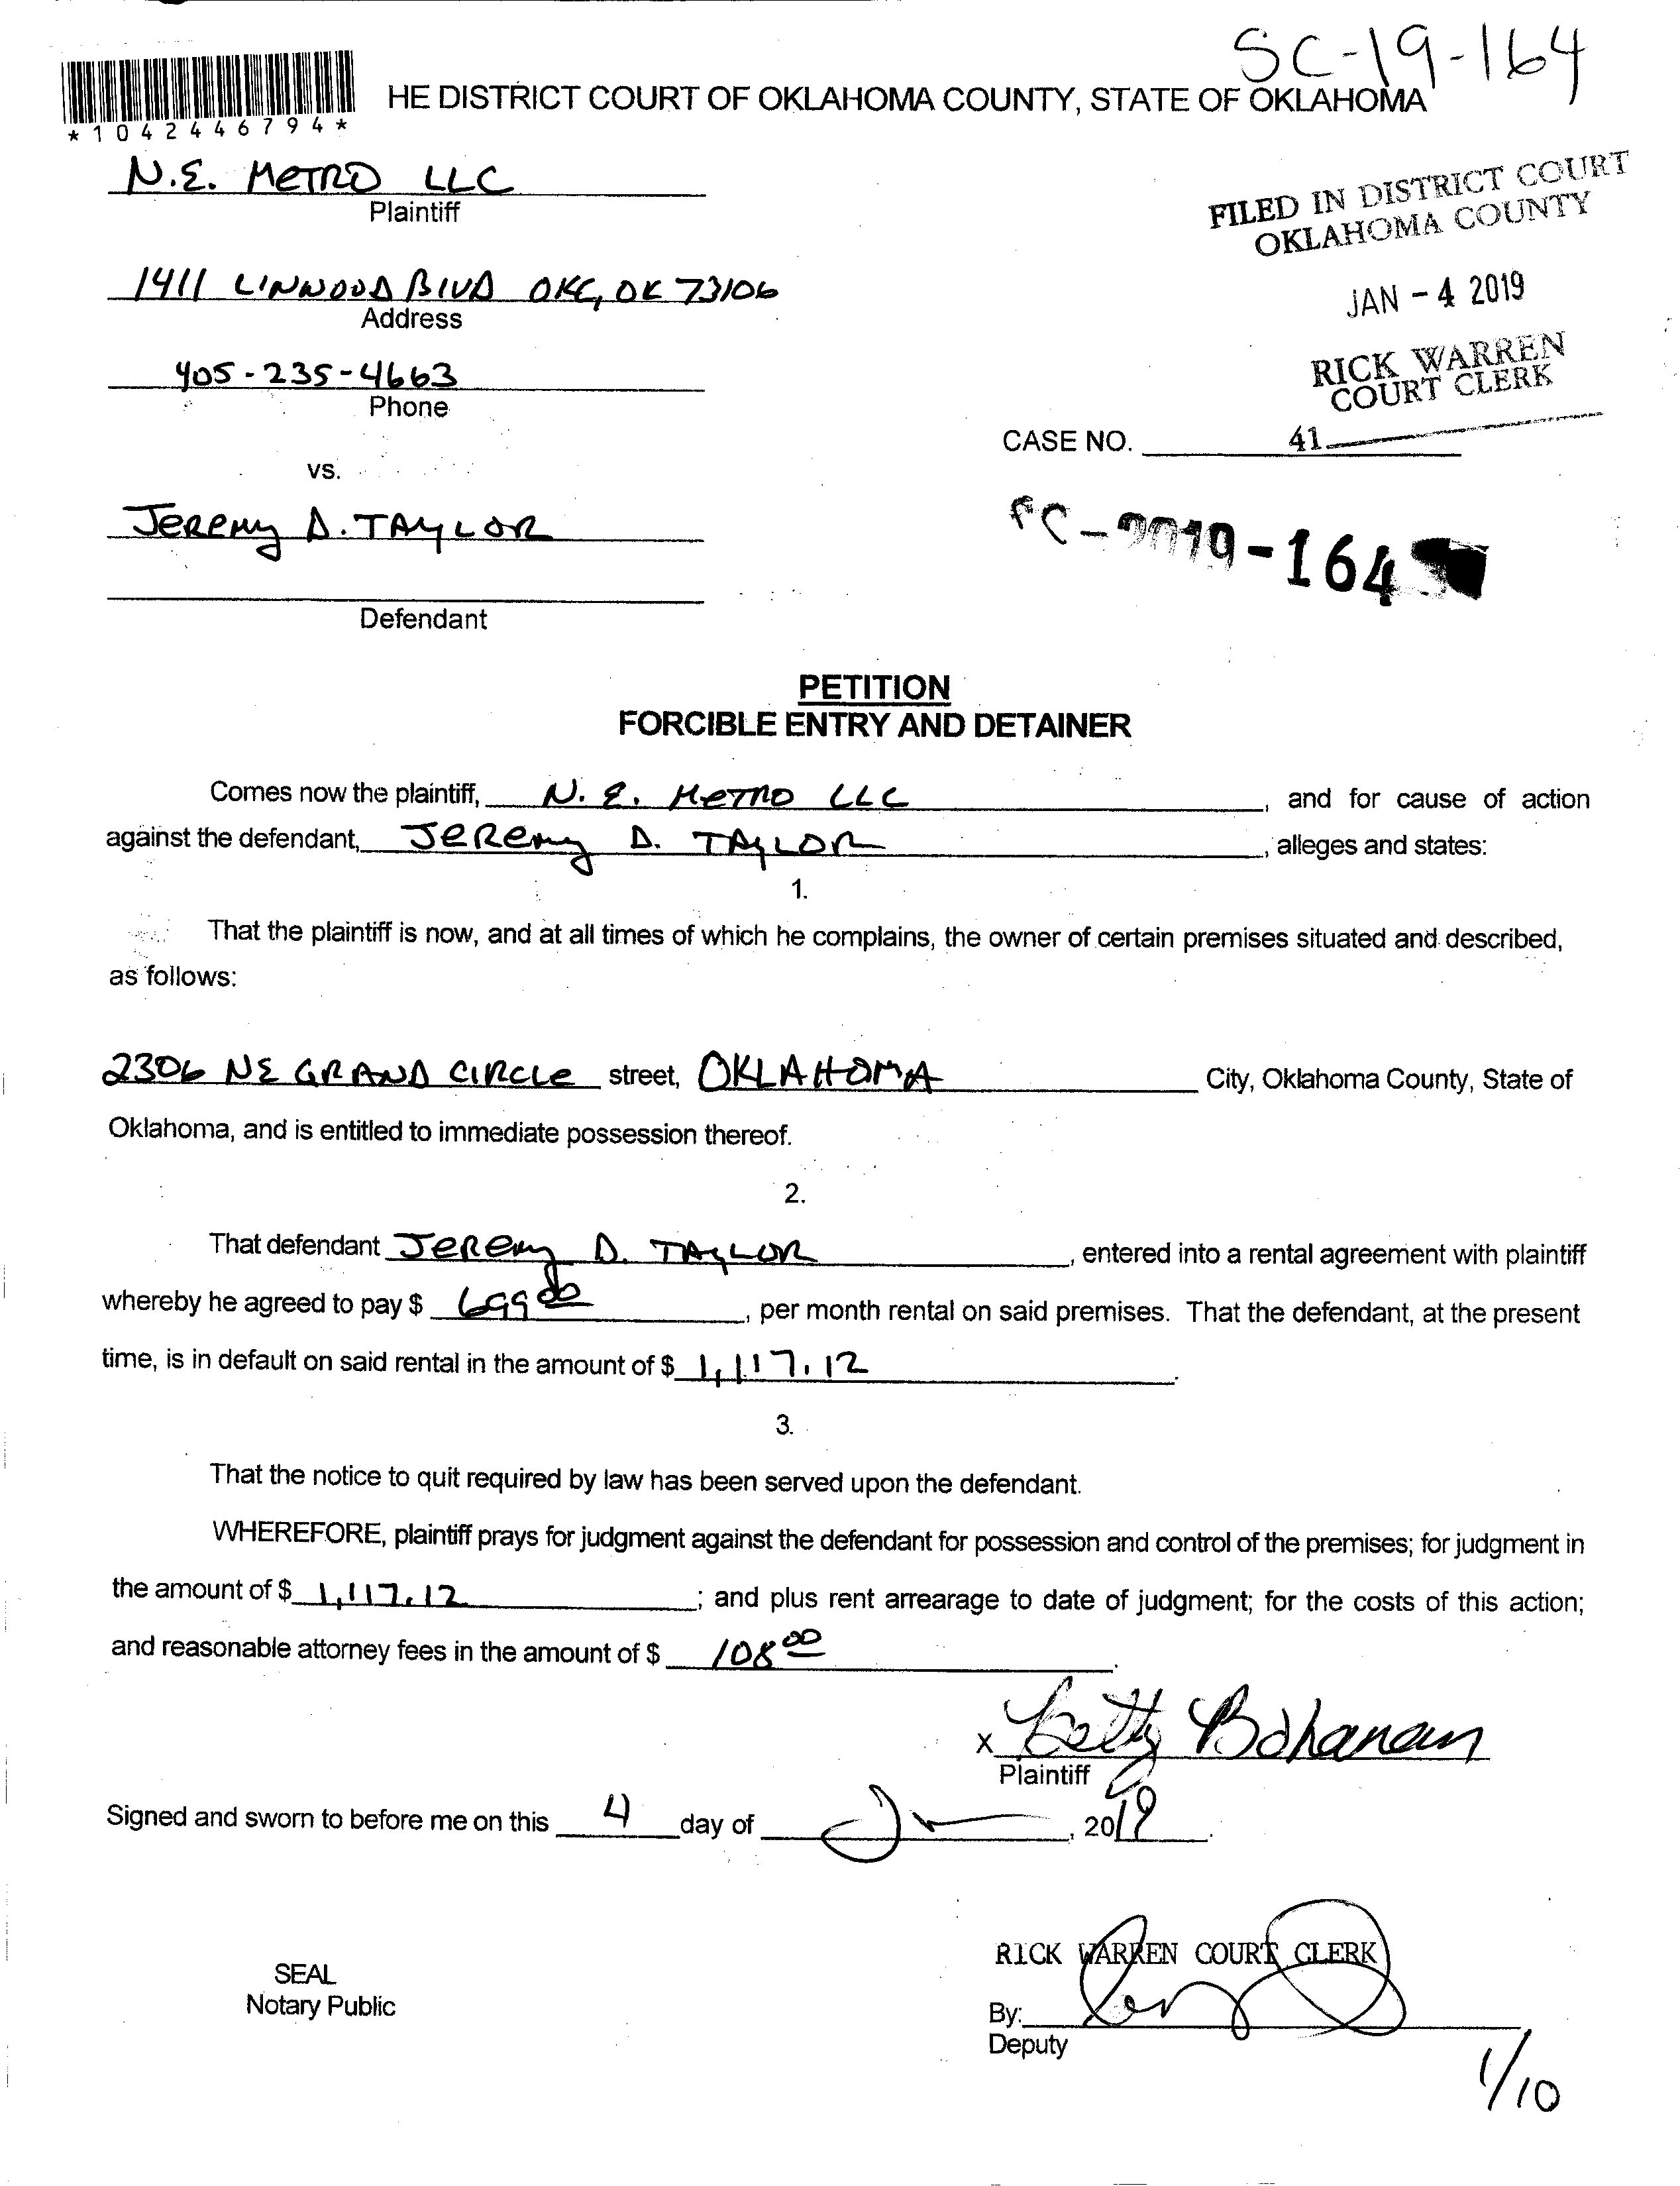 SC-19-164
*1042446794*
HE DISTRICT COURT OF OKLAHOMA COUNTY, STATE OF OKLAHOMA
N.E. METRO LLC
Plaintiff
FILED IN DISTRICT COURT
OKLAHOMA COUNTY
1411 LINWOOD BLVD OKC, OK 73106
Address
JAN - 4 2019
RICK WARREN
COURT CLERK
405-235-4663
Phone
CASE NO. 41
vs.
JEREMY D. TAYLOR
SC-2019-164
Defendant
PETITION
FORCIBLE ENTRY AND DETAINER
Comes now the plaintiff, N.E. METRO LLC, and for cause of action
against the defendant, JEREMY D. TAYLOR, alleges and states:
1.
That the plaintiff is now, and at all times of which he complains, the owner of certain premises situated and described,
as follows:
2306 NE GRAND CIRCLE street, OKLAHOMA City, Oklahoma County, State of
Oklahoma, and is entitled to immediate possession thereof.
2.
That defendant JEREMY D. TAYLOR, entered into a rental agreement with plaintiff
whereby he agreed to pay $ 699 00, per month rental on said premises. That the defendant, at the present
time, is in default on said rental in the amount of $ 1,117.12.
3.
That the notice to quit required by law has been served upon the defendant.
WHEREFORE, plaintiff prays for judgment against the defendant for possession and control of the premises; for judgment in
the amount of $ 1,117.12; and plus rent arrearage to date of judgment; for the costs of this action;
and reasonable attorney fees in the amount of $ 108 00.
X Betty Bohanan
Plaintiff
Signed and sworn to before me on this 4 day of J, 2019.
RICK WARREN COURT CLERK
SEAL
Notary Public
By:
Deputy
1/10